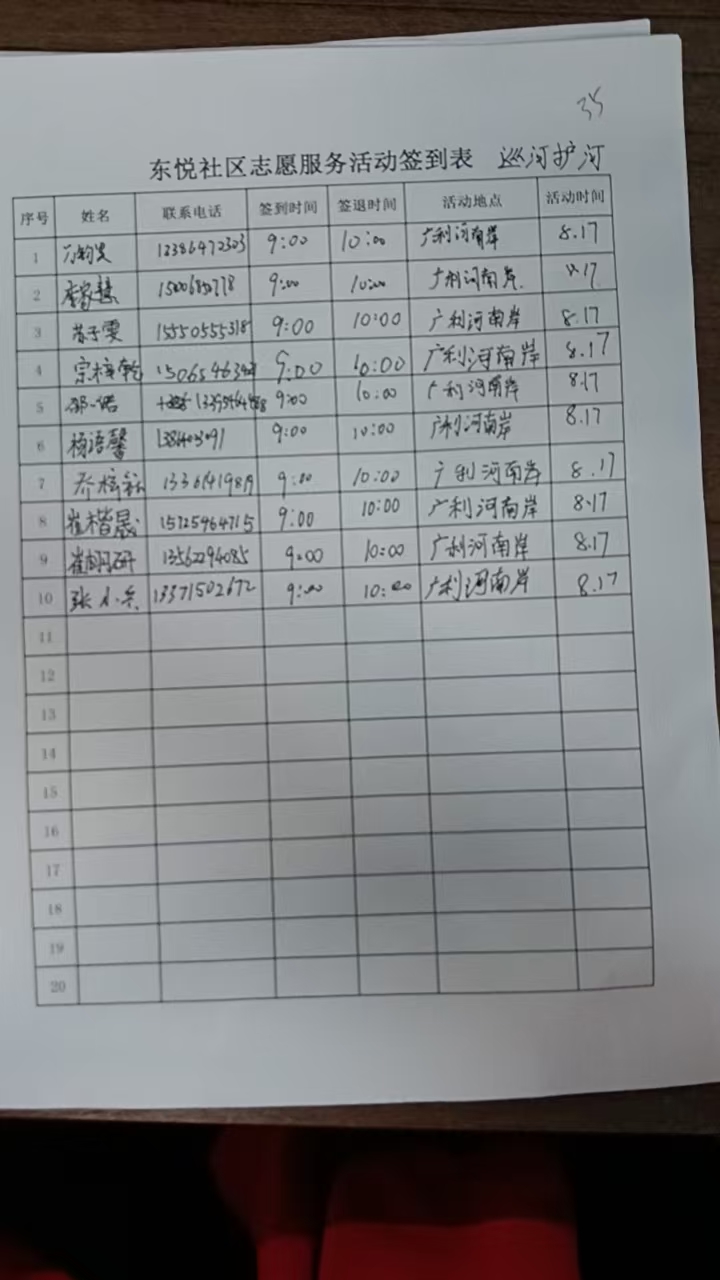 35
东悦社区志愿服务活动签到表 巡河护河
序号 姓名 联系电话 签到时间 签退时间 活动地点 活动时间
1 12386472303 9:00 10:00 广利河南岸 8.17
2 9:00 10:00 广利河南岸 8.17
3 苏子雯 15550555318 9:00 10:00 广利河南岸 8.17
4 9:00 10:00 广利河南岸 8.17
5 邵一诺 9:00 10:00 广利河南岸 8.17
6 杨语馨 9:00 10:00 广利河南岸 8.17
7 9:00 10:00 广利河南岸 8.17
8 崔楷晟 15725964715 9:00 10:00 广利河南岸 8.17
9 崔明研 13562294085 9:00 10:00 广利河南岸 8.17
10 张小兵 13371502672 9:00 10:00 广利河南岸 8.17
11
12
13
14
15
16
17
18
19
20